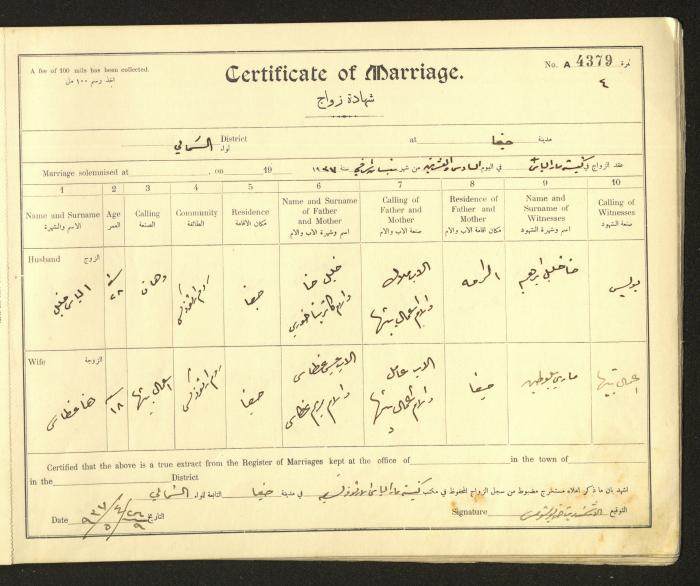 A fee of 100 mils has been collected.
اخذ رسم ١٠٠ مل
Certificate of Marriage.
شهادة زواج
No. A 4379 نمرة
٤
District
لواء الشمالي
at
مدينة حيفا
Marriage solemnised at , on 19
عقد الزواج في كنيسة مار الياس في اليوم السادس والعشرين من شهر نيسان سنة ١٩٣٧
1 2 3 4 5 6 7 8 9 10
Name and Surname
الاسم والشهرة
Age
العمر
Calling
الصنعة
Community
الطائفة
Residence
مكان الاقامة
Name and Surname
of Father
and Mother
اسم وشهرة الاب والام
Calling of
Father and
Mother
صنعة الاب والام
Residence of
Father and
Mother
مكان اقامة الاب والام
Name and
Surname of
Witnesses
اسم وشهرة الشهود
Calling of
Witnesses
صنعة الشهود
Husband الزوج
الياس خليل
٢٨
دهان
روم ارثوذكس
حيفا
خليل حنا
والام كاترينا خوري
الاب ملاك
والام اعمال بيتها
الرامه
حنا خليل ابراهيم
بوليس
Wife الزوجة
هنا غطاس
١٨
اعمال بيتها
روم ارثوذكس
حيفا
الاب عيسى غطاس
والام مريم غطاس
الاب عامل
والام اعمال بيتها
حيفا
ماري
اعمال بيتها
Certified that the above is a true extract from the Register of Marriages kept at the office of in the town of
in the District
اشهد بان ما ذكر اعلاه مستخرج مضبوط من سجل الزواج المحفوظ في مكتب كنيسة مار الياس الارثوذكسية في مدينة حيفا التابعة للواء الشمالي
Date التاريخ
Signature التوقيع